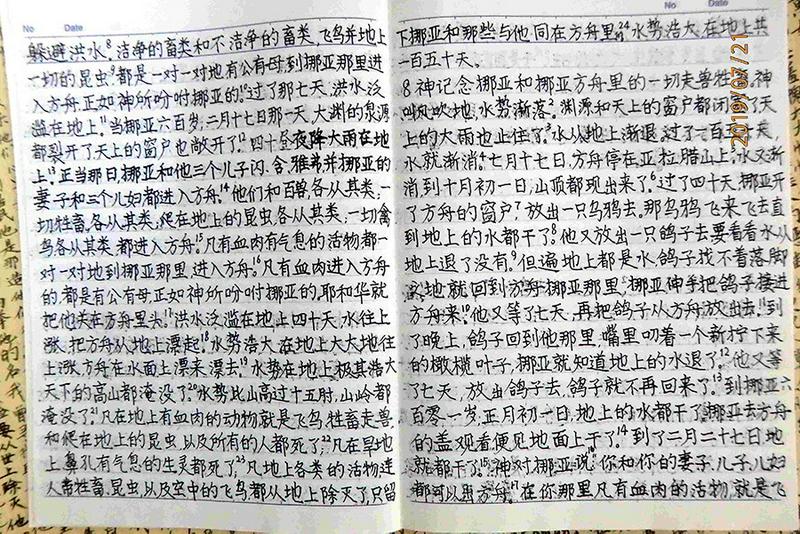 No Date
躲避洪水。8洁净的畜类和不洁净的畜类,飞鸟并地上
一切的昆虫9都是一对一对地有公有母,到挪亚那里进
入方舟,正如神所吩咐挪亚的。10过了那七天,洪水泛
滥在地上。11当挪亚六百岁,二月十七日那一天,大渊的泉源
都裂开了,天上的窗户也敞开了。12四十昼夜降大雨在地
上。13正当那日,挪亚和他三个儿子闪、含、雅弗并挪亚的
妻子和三个儿妇都进入方舟。14他们和百兽,各从其类;一
切牲畜,各从其类;爬在地上的昆虫,各从其类;一切禽
鸟各从其类,都进入方舟。15凡有血肉有气息的活物,都一
对一对地到挪亚那里,进入方舟。16凡有血肉进入方舟
的,都是有公有母,正如神所吩咐挪亚的。耶和华就
把他关在方舟里头。17洪水泛滥在地上四十天,水往上
涨,把方舟从地上漂起。18水势浩大,在地上大大地往
上涨,方舟在水面上漂来漂去。19水势在地上极其浩大,
天下的高山都淹没了。20水势比山高过十五肘,山岭都
淹没了。21凡在地上有血肉的动物,就是飞鸟、牲畜、走兽
和爬在地上的昆虫,以及所有的人都死了。22凡在旱地
上、鼻孔有气息的生灵都死了。23凡地上各类的活物,连
人带牲畜、昆虫,以及空中的飞鸟,都从地上除灭了,只留
No Date
下挪亚和那些与他同在方舟里的。24水势浩大,在地上共
一百五十天。
8神记念挪亚和挪亚方舟里的一切走兽牲畜。神
叫风吹地,水势渐落。2渊源和天上的窗户都闭塞了,天
上的大雨也止住了。3水从地上渐退。过了一百五十天,
水就渐消。4七月十七日,方舟停在亚拉腊山上。5水又渐
消,到十月初一日,山顶都现出来了。6过了四十天,挪亚开
了方舟的窗户,7放出一只乌鸦去。那乌鸦飞来飞去,直
到地上的水都干了。8他又放出一只鸽子去,要看看水从
地上退了没有。9但遍地上都是水,鸽子找不着落脚
之地,就回到方舟挪亚那里,挪亚伸手把鸽子接进
方舟来。10他又等了七天,再把鸽子从方舟放出去。11到
了晚上,鸽子回到他那里,嘴里叼着一个新拧下来
的橄榄叶子,挪亚就知道地上的水退了。12他又等
了七天,放出鸽子去,鸽子就不再回来了。13到挪亚六
百零一岁,正月初一日,地上的水都干了。挪亚去方舟
的盖观看,便见地面上干了。14到了二月二十七日,地
就都干了。15神对挪亚说:16你和你的妻子、儿子、儿妇
都可以出方舟。17在你那里凡有血肉的活物,就是飞
2019/07/21